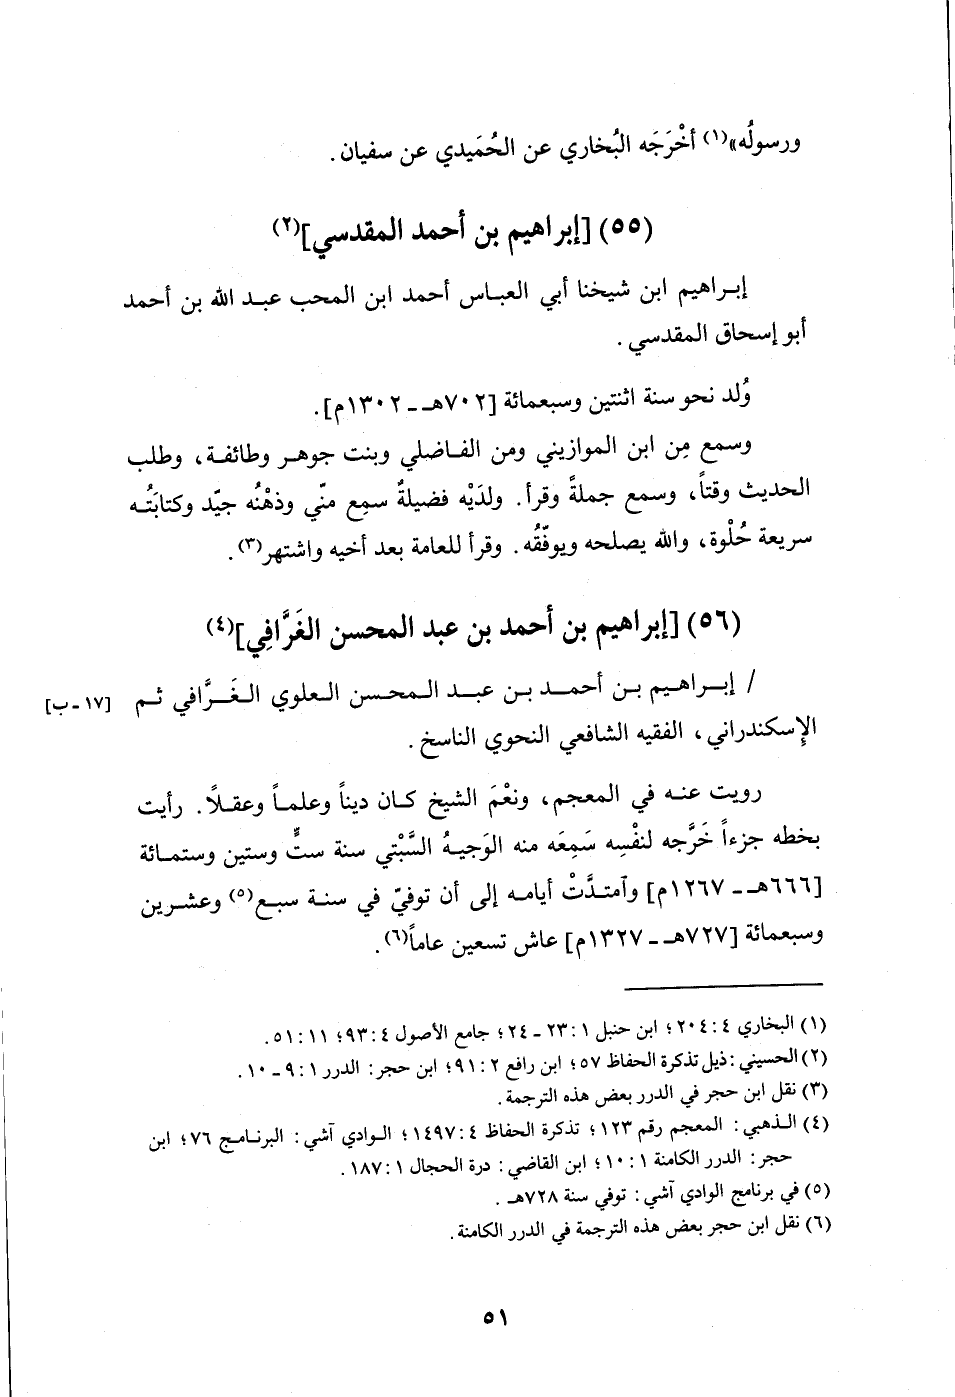 ورسولُه»(١) أخْرَجَه البُخاري عن الحُمَيدي عن سفيان.
(٥٥) [إبراهيم بن أحمد المقدسي](٢)
إبراهيم ابن شيخنا أبي العباس أحمد ابن المحب عبد الله بن أحمد
أبو إسحاق المقدسي.
وُلد نحو سنة اثنتين وسبعمائة [٧٠٢هـ - ١٣٠٢م].
وسمع مِن ابن الموازيني ومن الفاضلي وبنت جوهر وطائفة، وطلب
الحديث وقتاً، وسمع جملةً وقرأ. ولدَيْه فضيلةٌ سمِع منّي وذهْنُه جيّد وكتابَتُه
سريعة حُلْوة، والله يصلحه ويوفّقُه. وقرأ للعامة بعد أخيه واشتهر(٣).
(٥٦) [إبراهيم بن أحمد بن عبد المحسن الغَرَّافِي](٤)
/ إبراهيم بن أحمد بن عبد المحسن العلوي الغَرَّافي ثم [١٧ - ب]
الإسكندراني، الفقيه الشافعي النحوي الناسخ.
رويت عنه في المعجم، ونعْمَ الشيخ كان ديناً وعلماً وعقلاً. رأيت
بخطه جزءاً خَرَّجه لنفْسِه سَمِعَه منه الوَجيهُ السَّبْتي سنة ستٍّ وستين وستمائة
[٦٦٦هـ - ١٢٦٧م] وآمتدَّتْ أيامه إلى أن توفيّ في سنة سبع(٥) وعشرين
وسبعمائة [٧٢٧هـ - ١٣٢٧م] عاش تسعين عاماً(٦).
(١) البخاري ٤: ٢٠٤؛ ابن حنبل ١: ٢٣ - ٢٤؛ جامع الأصول ٤: ٩٣؛ ١١: ٥١.
(٢) الحسيني: ذيل تذكرة الحفاظ ٥٧؛ ابن رافع ٢: ٩١؛ ابن حجر: الدرر ١: ٩ - ١٠.
(٣) نقل ابن حجر في الدرر بعض هذه الترجمة.
(٤) الذهبي: المعجم رقم ١٢٣؛ تذكرة الحفاظ ٤: ١٤٩٧؛ الوادي آشي: البرنامج ٧٦؛ ابن
حجر: الدرر الكامنة ١: ١٠؛ ابن القاضي: درة الحجال ١: ١٨٧.
(٥) في برنامج الوادي آشي: توفي سنة ٧٢٨هـ.
(٦) نقل ابن حجر بعض هذه الترجمة في الدرر الكامنة.
٥١